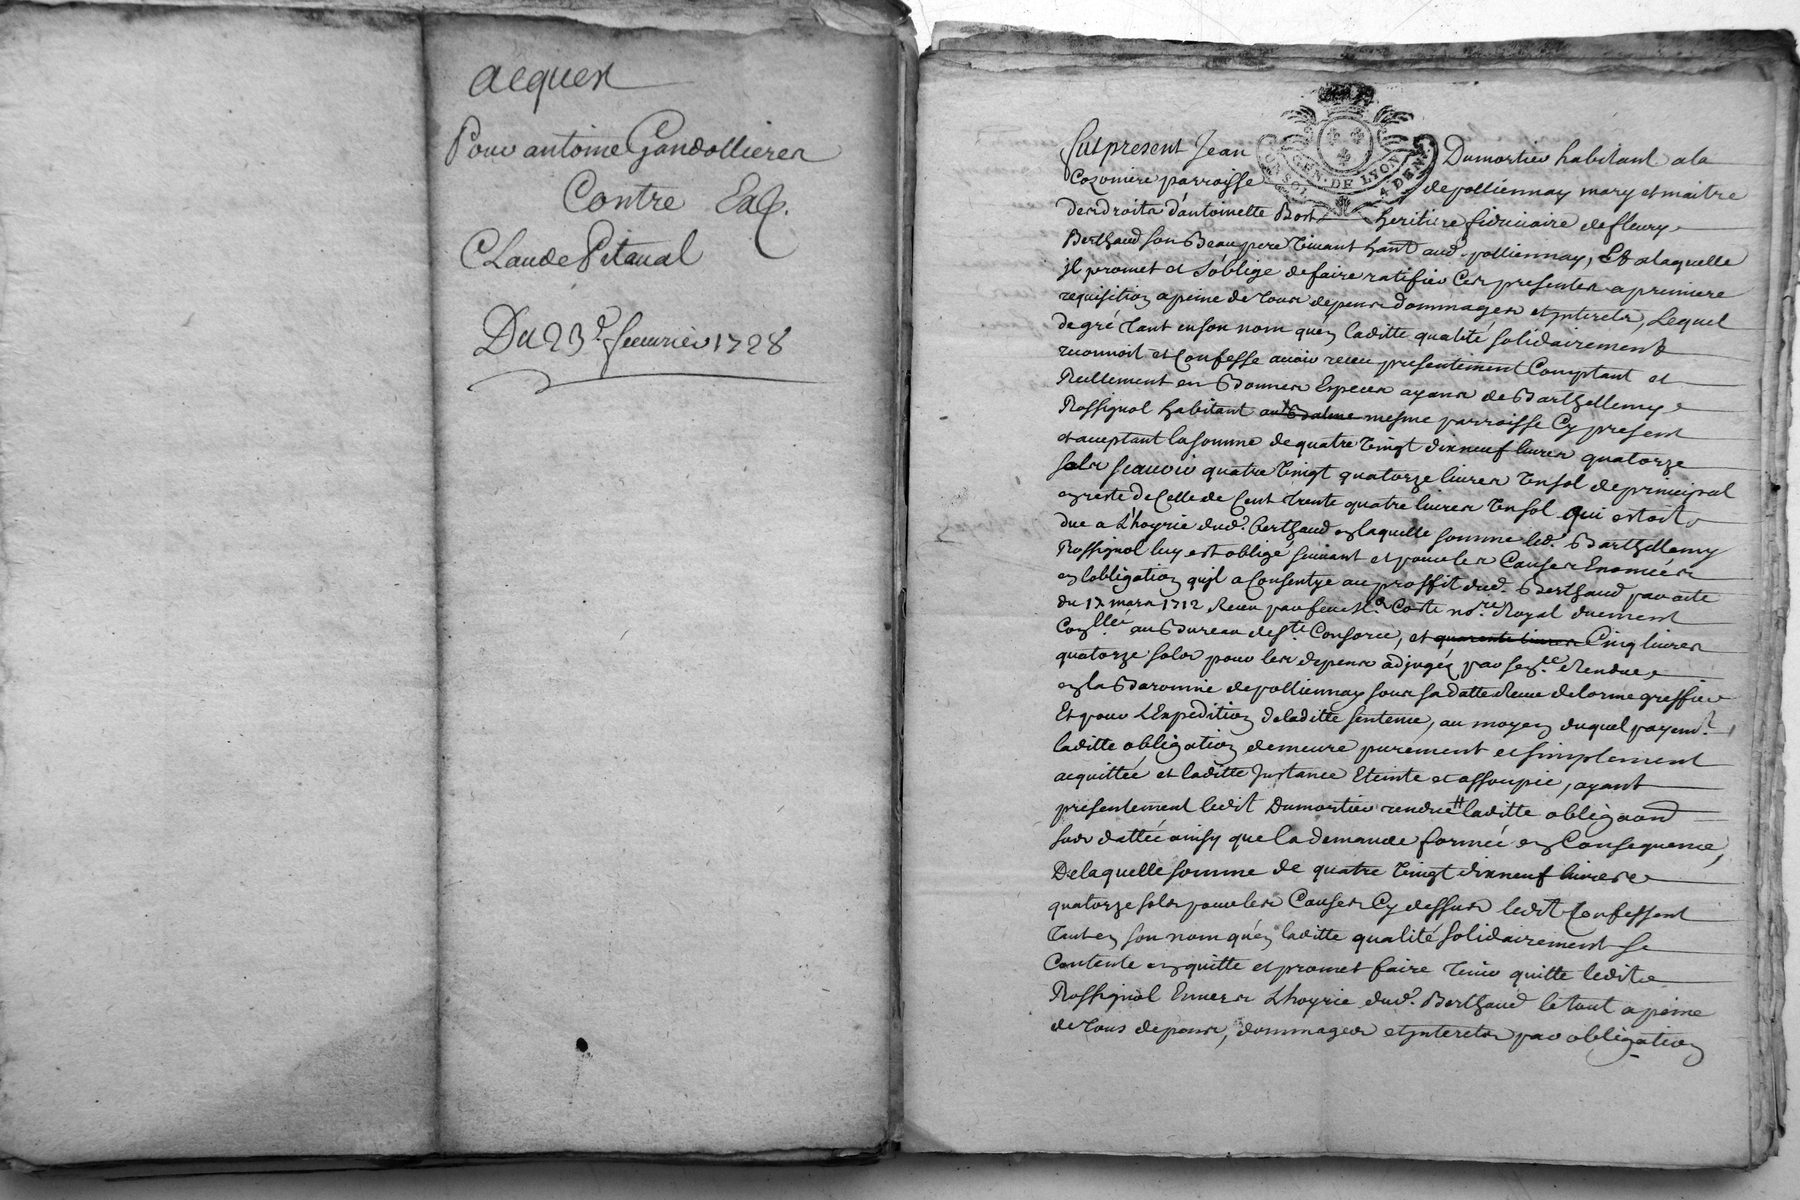 acquer
Pour antoine Gandollierer
Contre
Claude Pitaval
Du 23e feuurier 1728
GEN. DE LYON
4 DEN.
Fut present Jean Dumortier habitant a la
Cozoniere parroisse de polliennay mary et maitre
des droits d'antoinette Bost heritiere fiduciaire de fleury
Berthaud son Beaupere vivant hant aud. polliennay, Et a laquelle
jl promet et s'oblige de faire ratifier Ces presentes a premiere
requisition a peine de tous depens dommages et jnterets, Lequel
de gré tant en son nom qu'en laditte qualité solidairement
reconnoit et Confesse avoir receu presentement Comptant et
Reellement en Bonnes Especes ayans de Barthellemy
Rossignol habitant au Balme mesme parroisse Cy present
et acceptant la somme de quatre vingt dixneuf livres quatorze
sols scauoir quatre vingt quatorze livres un sol de principal
en reste de Celle de Cent trente quatre livres un sol qui estoit
due a L'hoyrie dud. Berthaud en laquelle somme led. Barthellemy
Rossignol luy est obligé suiuant et pour les Causes Enoncées
en lobligation qu'jl a Consentye au proffit dud. Berthaud par acte
du 17 mars 1712 Receu par feu Me. Coste nore. Royal duement
Conllé au Bureau de Ste Consorce, et quarente livres Cinq livres
quatorze sols pour les depens adjugés par sence. Rendue
en la Baronnie de polliennay sous sa datte Receue delorme greffier
Et pour L'Expedition de laditte sentence, au moyen duquel payemt.
laditte obligation demeure purement et simplement
acquittée et laditte Jnstance Eteinte et assoupie, ayant
presentement ledit Dumortier rendue # laditte obligaon
sus dattée ainsy que la demande formée en Consequence,
De laquelle somme de quatre vingt dixneuf livres
quatorze sols pour les Causes Cy dessus ledit Confessent
tant en son nom qu'en laditte qualité solidairement se
Contente en quitte et promet faire tenir quitte ledit
Rossignol Enuers L'hoyrie dud. Berthaud le tout a peine
de tous depens, dommages et jnterets par obligation